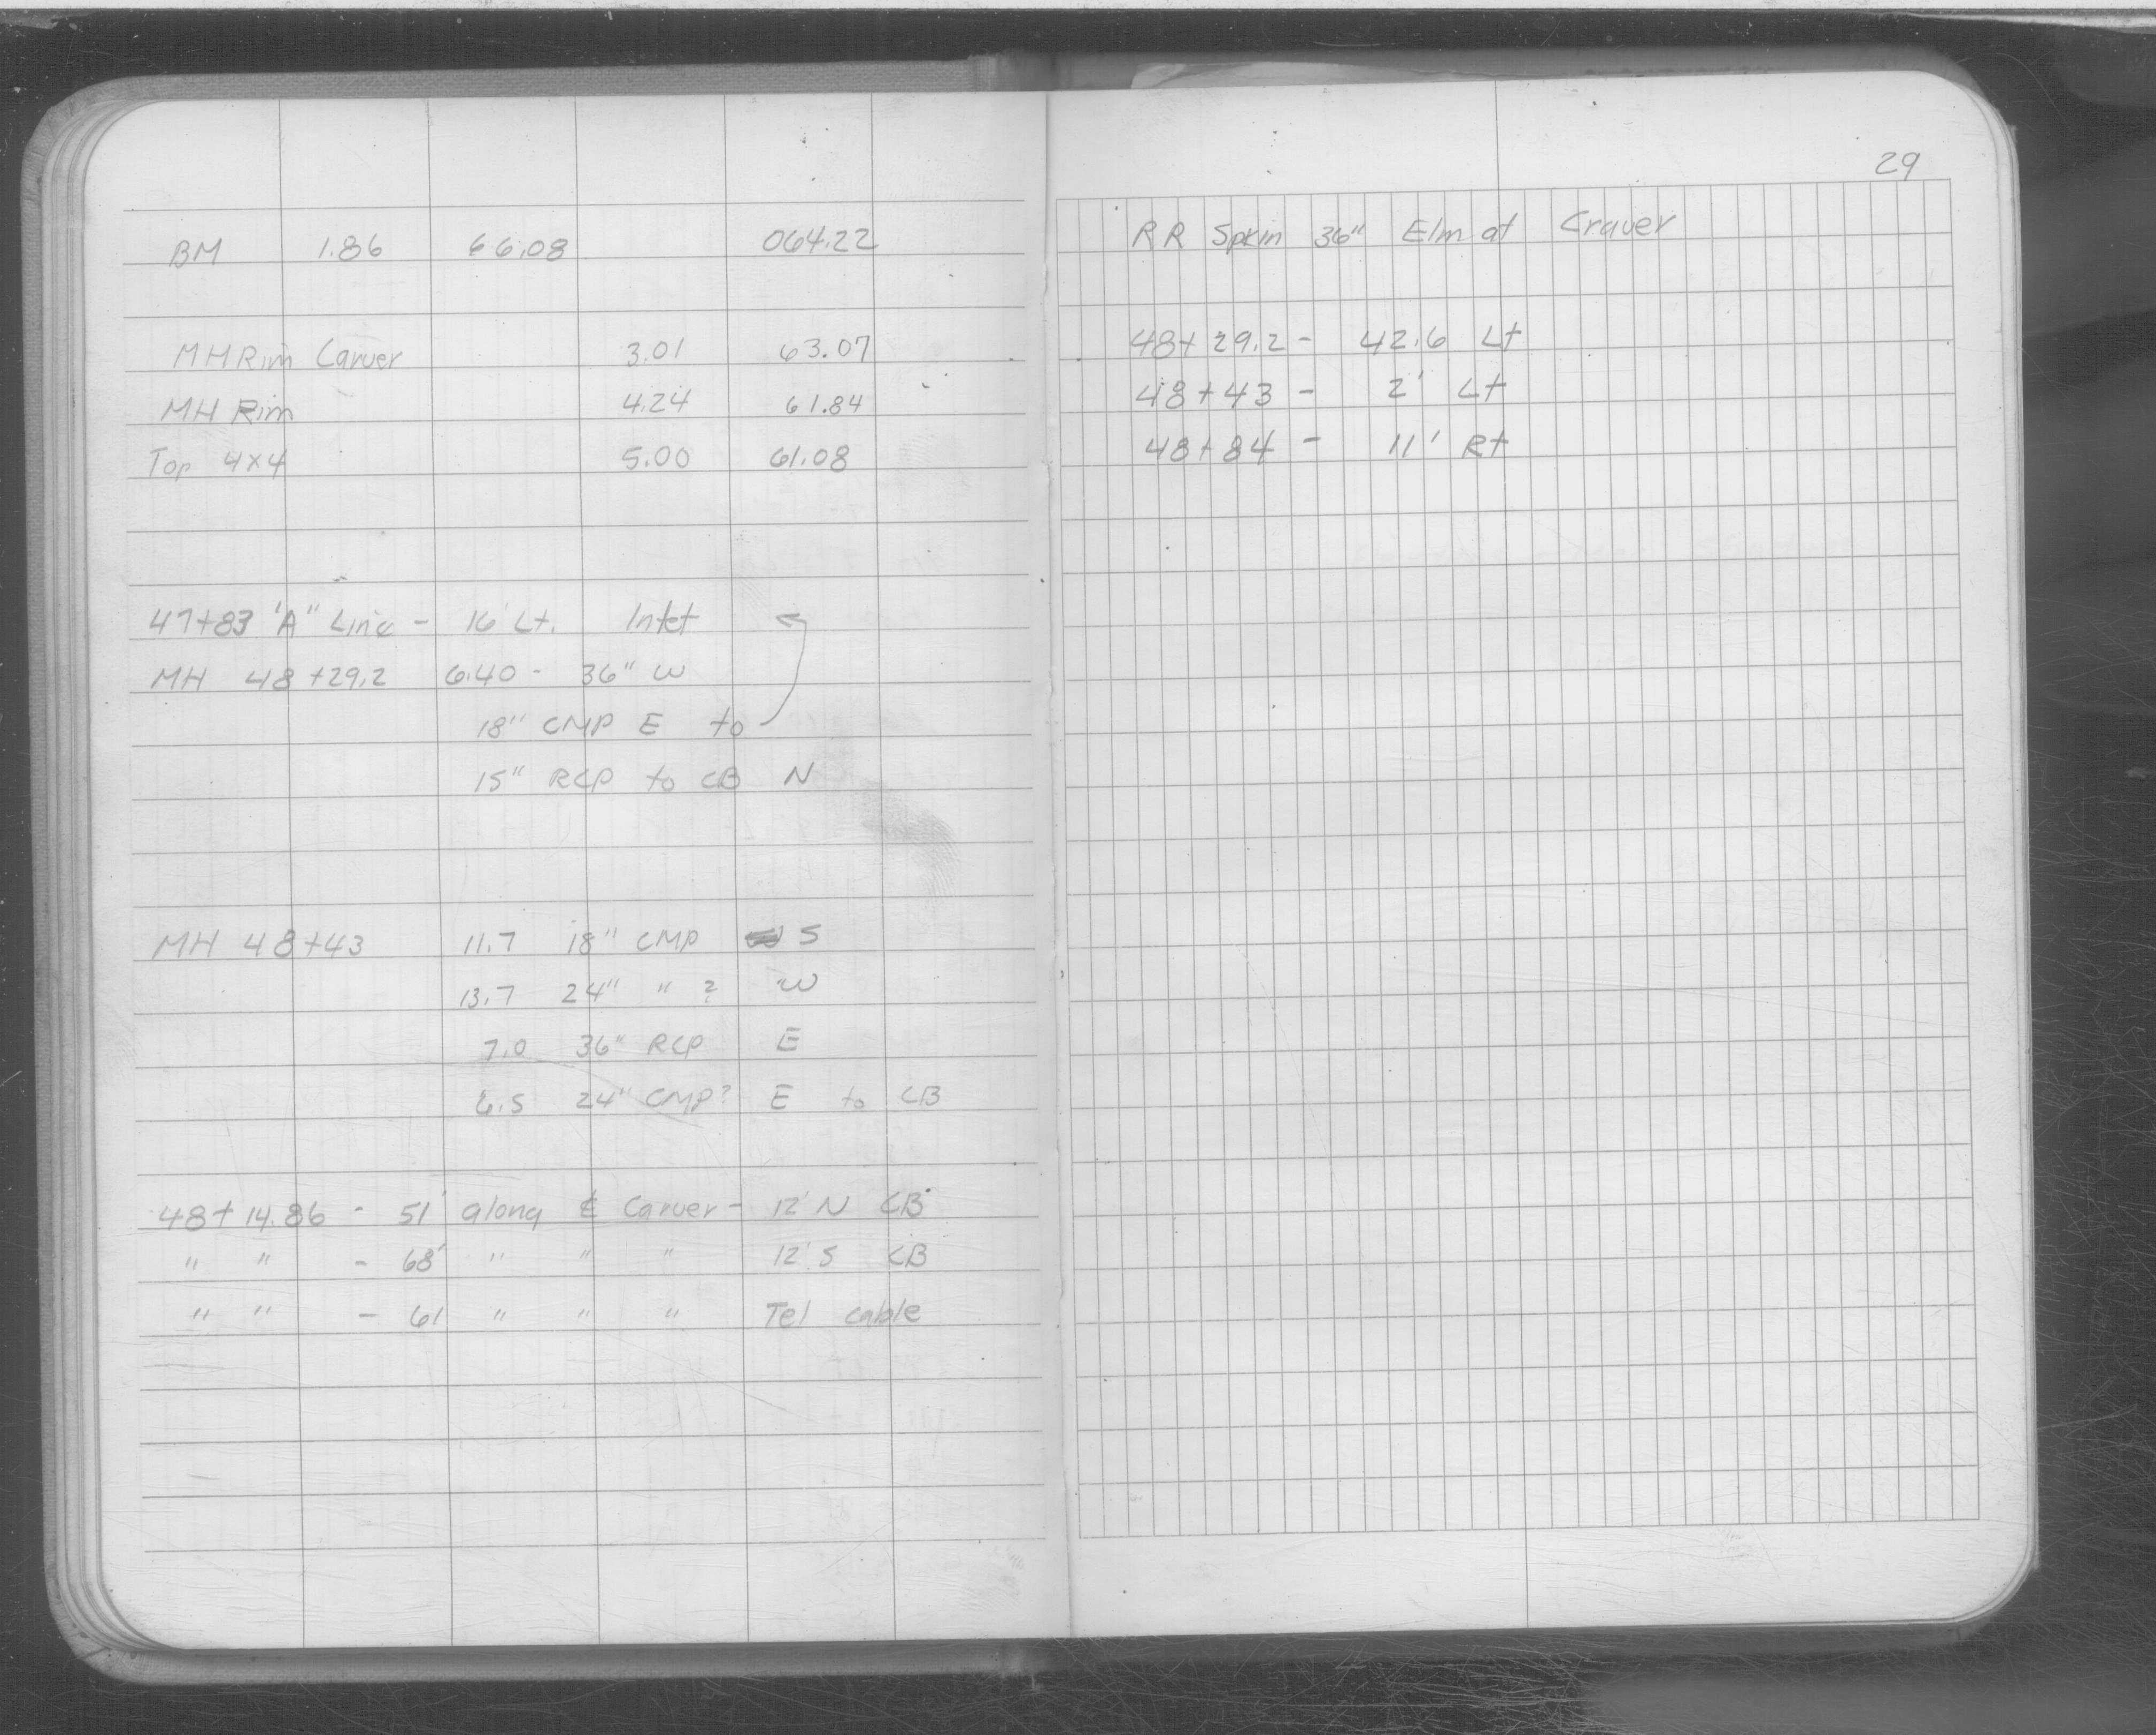 BM 1.86 66.08 064.22
MH Rim Carver 3.01 63.07
MH Rim 4.24 61.84
Top 4x4 5.00 61.08
47+83 "A" Line - 16' Lt. Inlet
MH 48+29.2 6.40 - 36" W
18" CMP E to
15" RCP to CB N
MH 48+43 11.7 18" CMP S
13.7 24" " ? W
7.0 36" RCP E
6.5 24" CMP? E to CB
48+14.86 - 51' along ℄ Carver - 12' N CB
" " - 68' " " " 12' S CB
" " - 61 " " " Tel cable
29
RR Spkin 36" Elm at Craver
48+29.2 - 42.6 Lt
48+43 - 2' Lt
48+84 - 11' Rt